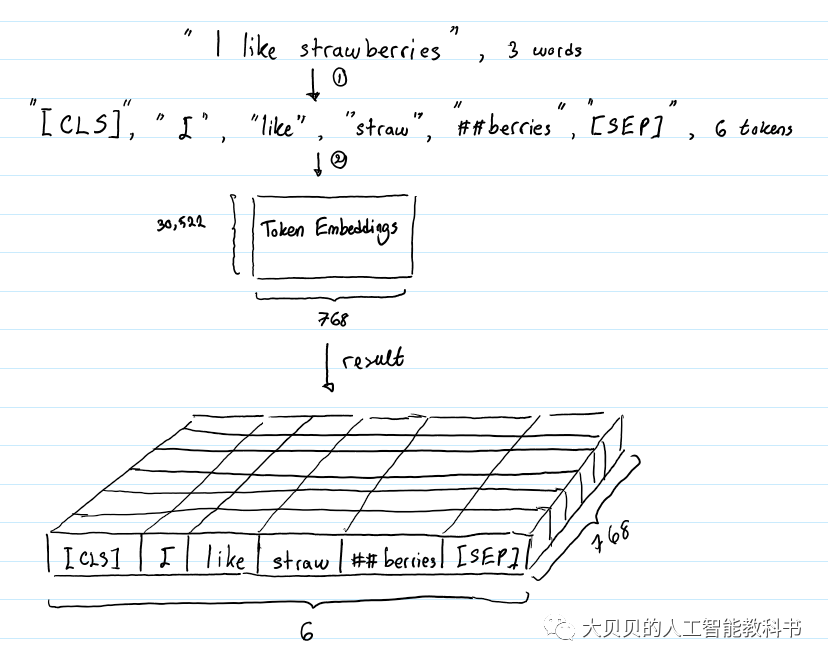 " I like strawberries", 3 words
①
"[CLS]", "I", "like", "straw", "##berries", "[SEP]", 6 tokens
②
30,522
Token Embeddings
768
result
[CLS] I like straw ##berries [SEP]
768
6
大贝贝的人工智能教科书